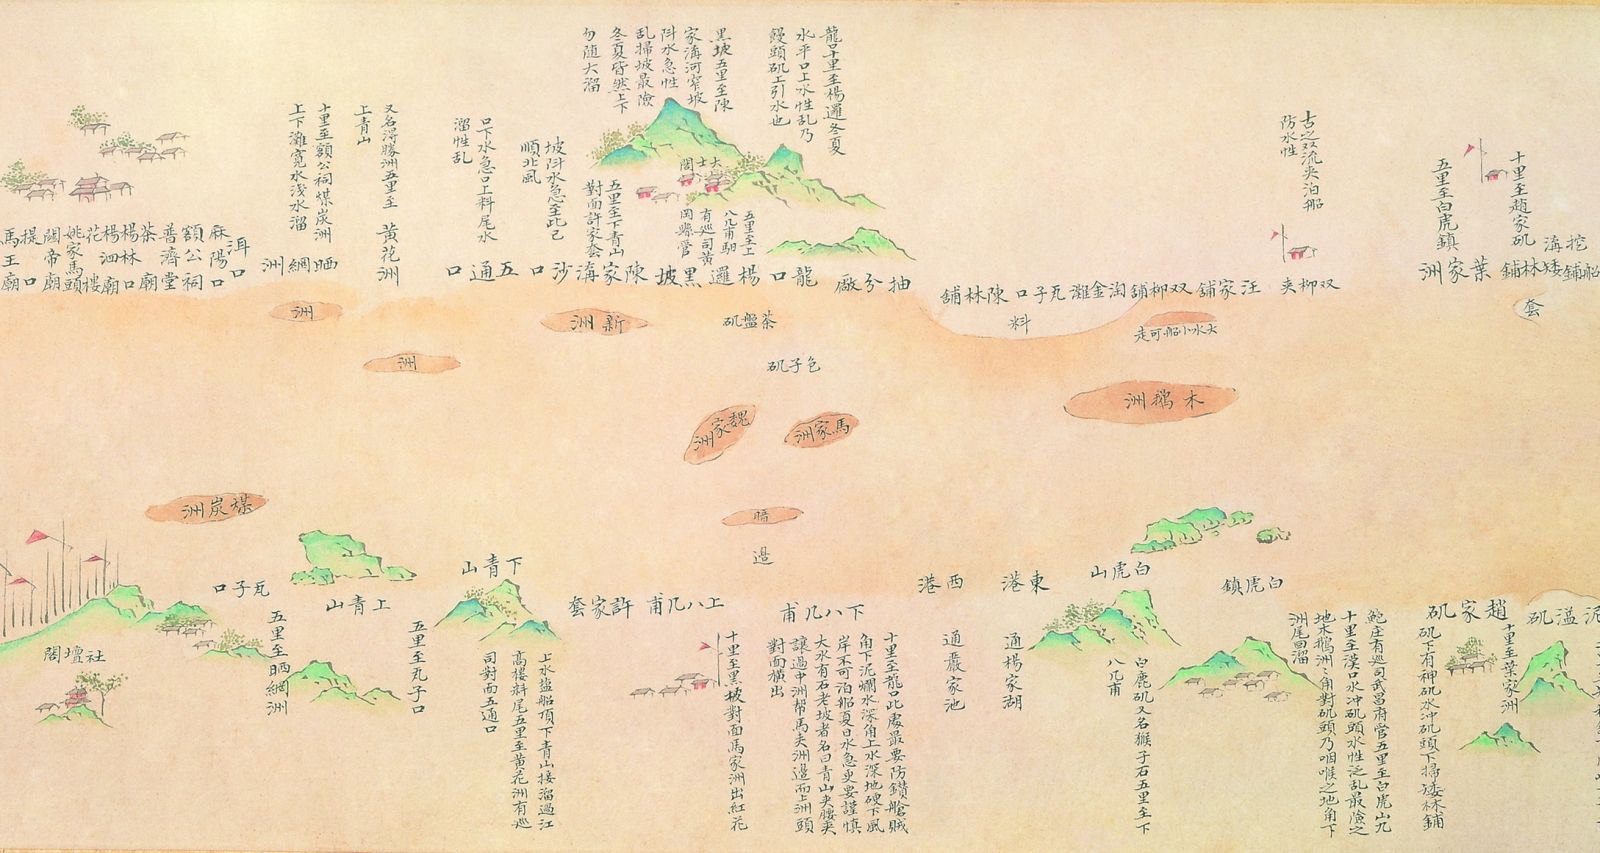 十里至趙家矶
五里至白虎鎮
挖溝
矮林舖
葉家洲
套
古之双流夹泊船
防水性
双柳夹
汪家舖
双柳舖
淘金灘
瓦子口
陳林舖
料
大水小船可走
木鵝洲
龍口十里至楊邏冬夏
水平口上水性乱乃
饅頭矶上引水也
黑坡五里至陳
家溝河窄坡
阧水急性
乱掃坡最險
冬夏皆然上下
勿随大溜
大士閣
五里至上
八几甫馹
有巡司黄
岡縣管
五里至下青山
對面許家套
坡阧水急至此己
順北風
口下水急口上料尾水
溜性乱
抽分廠
龍口
楊邏
黑坡
陳家溝
沙口
五通口
茶盤矶
色子矶
新洲
洲
洲
馬家洲
魏家洲
暗
過
又名得勝洲五里至
上青山
黄花洲
十里至額公祠煤炭洲
上下灘寬水浅水溜
晒網洲
洱口
麻陽口
額公祠
普濟堂
茶廟
楊林口
楊泗廟
花樓
姚家馬頭
關帝廟
提口
馬王廟
煤炭洲
泥溢矶
十里至葉家洲
趙家矶
矶下有神矶水冲矶頭下掃矮林鋪
白虎鎮
鮑庄有巡司武昌府管五里至白虎山九
十里至漢口水冲矶頭水性泛乱最險之
地木鵝洲洲角對矶頭乃咽喉之地角下
洲尾回溜
白虎山
白鹿矶又名猴子石五里至下
八几甫
東港
通楊家湖
西港
通嚴家池
下八几甫
十里至龍口此處最要防鑽艙賊
角下泥爛水深角上水深地硬下風
岸不可泊船夏日水急更要謹慎
大水有石老坡者名曰青山夹腰夹
讓過中洲帮馬夹洲邊而上洲頭
對面横出
上八几甫
十里至黑坡對面馬家洲出紅花
許家套
下青山
上水盐船頂下青山接溜過江
高樓料尾五里至黄花洲有巡
司對面五通口
上青山
五里至丸子口
瓦子口
五里至晒網洲
社壇閣